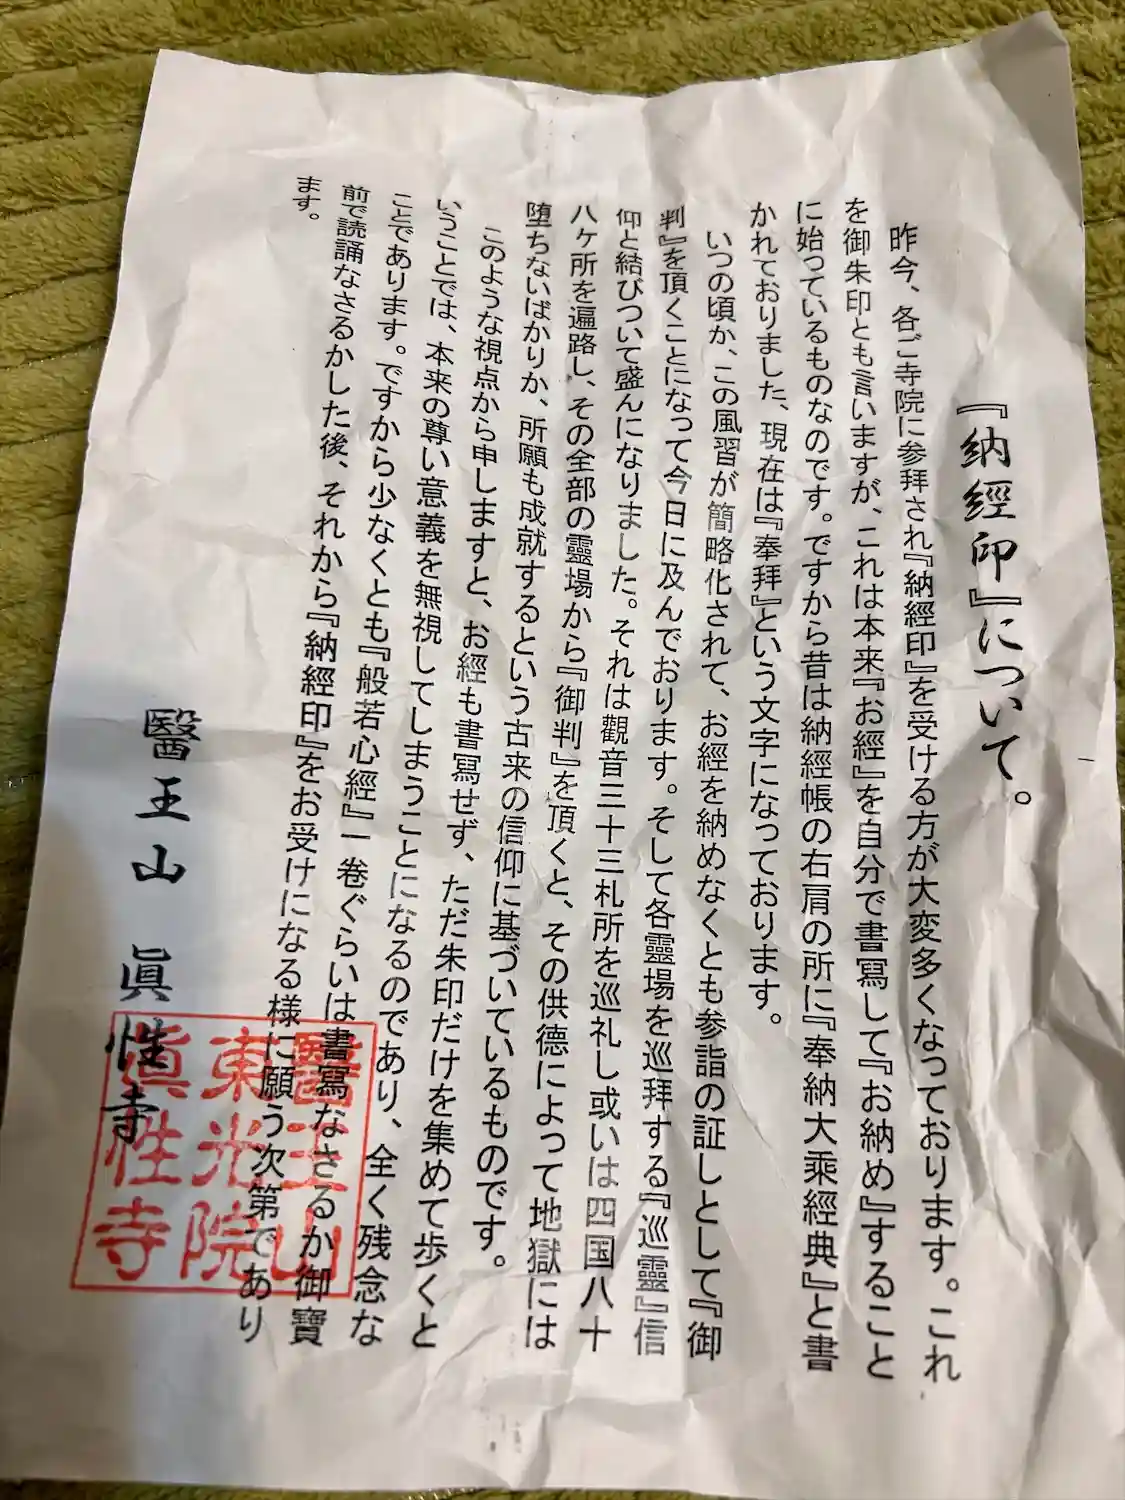 『納經印』について。
昨今、各ご寺院に参拜され『納經印』を受ける方が大変多くなっております。これ
を御朱印とも言いますが、これは本来『お經』を自分で書寫して『お納め』すること
に始っているものなのです。ですから昔は納經帳の右肩の所に『奉納大乘經典』と書
かれておりました、現在は『奉拜』という文字になっております。
いつの頃か、この風習が簡略化されて、お經を納めなくとも参詣の証しとして『御
判』を頂くことになって今日に及んでおります。そして各靈場を巡拜する『巡靈』信
仰と結びついて盛んになりました。それは觀音三十三札所を巡礼し或いは四国八十
八ヶ所を遍路し、その全部の靈場から『御判』を頂くと、その供徳によって地獄には
堕ちないばかりか、所願も成就するという古来の信仰に基づいているものです。
このような視点から申しますと、お經も書寫せず、ただ朱印だけを集めて歩くと
いうことでは、本来の尊い意義を無視してしまうことになるのであり、全く残念な
ことであります。ですから少なくとも『般若心經』一卷ぐらいは書寫なさるか御寶
前で読誦なさるかした後、それから『納經印』をお受けになる様に願う次第であり
ます。
醫王山 眞性寺
醫王山
東光院
眞性寺